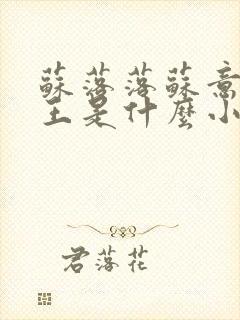 蘇落落蘇意
主是什麼小
君落花